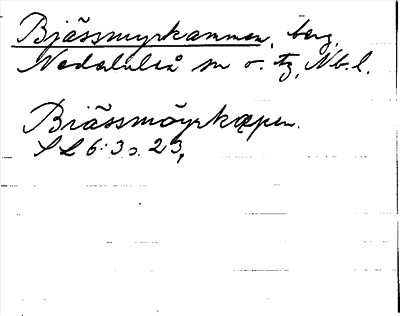 Bjässmyrkammen, berg,
Nederluleå sn o. tg, Nb. l.
Biässmöyrkæpen.
SL 6:3 s. 23,